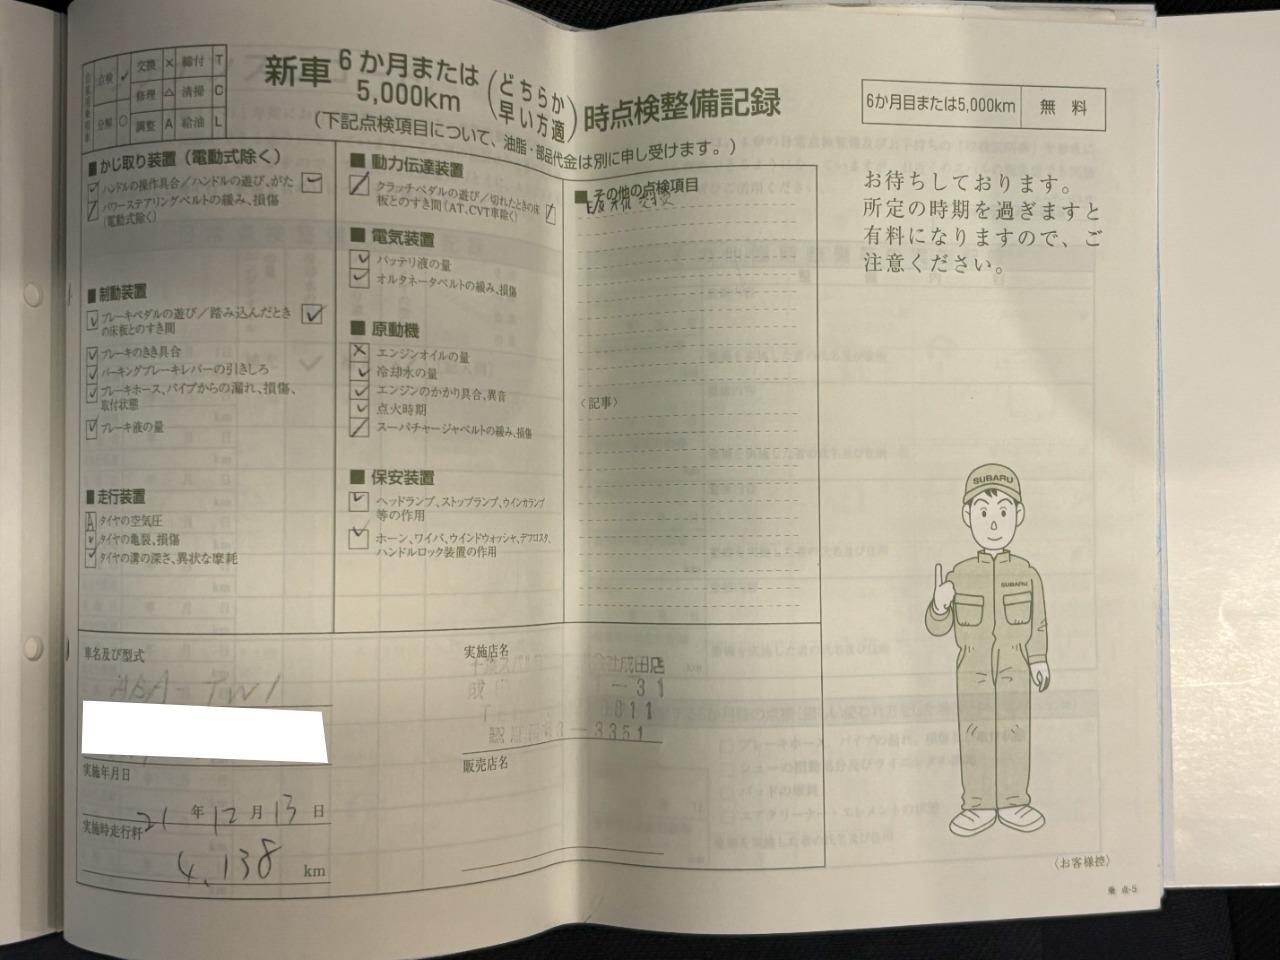 点検 ✓ 交換 × 締付 T
修理 △ 清掃 C
分解 ○ 調整 A 給油 L
新車 6か月または5,000km (どちらか早い方適) 時点検整備記録
(下記点検項目について、油脂・部品代金は別に申し受けます。)
6か月目または5,000km 無料
お待ちしております。
所定の時期を過ぎますと
有料になりますので、ご
注意ください。
■ かじ取り装置(電動式除く)
ハンドルの操作具合/ハンドルの遊び、がた
パワーステアリングベルトの緩み、損傷
(電動式除く)
■ 制動装置
ブレーキペダルの遊び/踏み込んだとき
の床板とのすき間
ブレーキのきき具合
パーキングブレーキレバーの引きしろ
ブレーキホース、パイプからの漏れ、損傷、
取付状態
ブレーキ液の量
■ 走行装置
A タイヤの空気圧
タイヤの亀裂、損傷
タイヤの溝の深さ、異状な摩耗
■ 動力伝達装置
クラッチペダルの遊び/切れたときの床
板とのすき間(AT、CVT車除く)
■ 電気装置
バッテリ液の量
オルタネータベルトの緩み、損傷
■ 原動機
× エンジンオイルの量
冷却水の量
エンジンのかかり具合、異音
点火時期
スーパチャージャベルトの緩み、損傷
■ 保安装置
ヘッドランプ、ストップランプ、ウインカランプ
等の作用
ホーン、ワイパ、ウインドウォッシャ、デフロスタ、
ハンドルロック装置の作用
■ その他の点検項目
〈記事〉
SUBARU
SUBARU
車名及び型式
ABA-TW1
実施年月日
21年12月13日
実施時走行粁
4,138 km
実施店名
成田店
-31
011
3-3351
販売店名
〈お客様控〉
乗 点-5